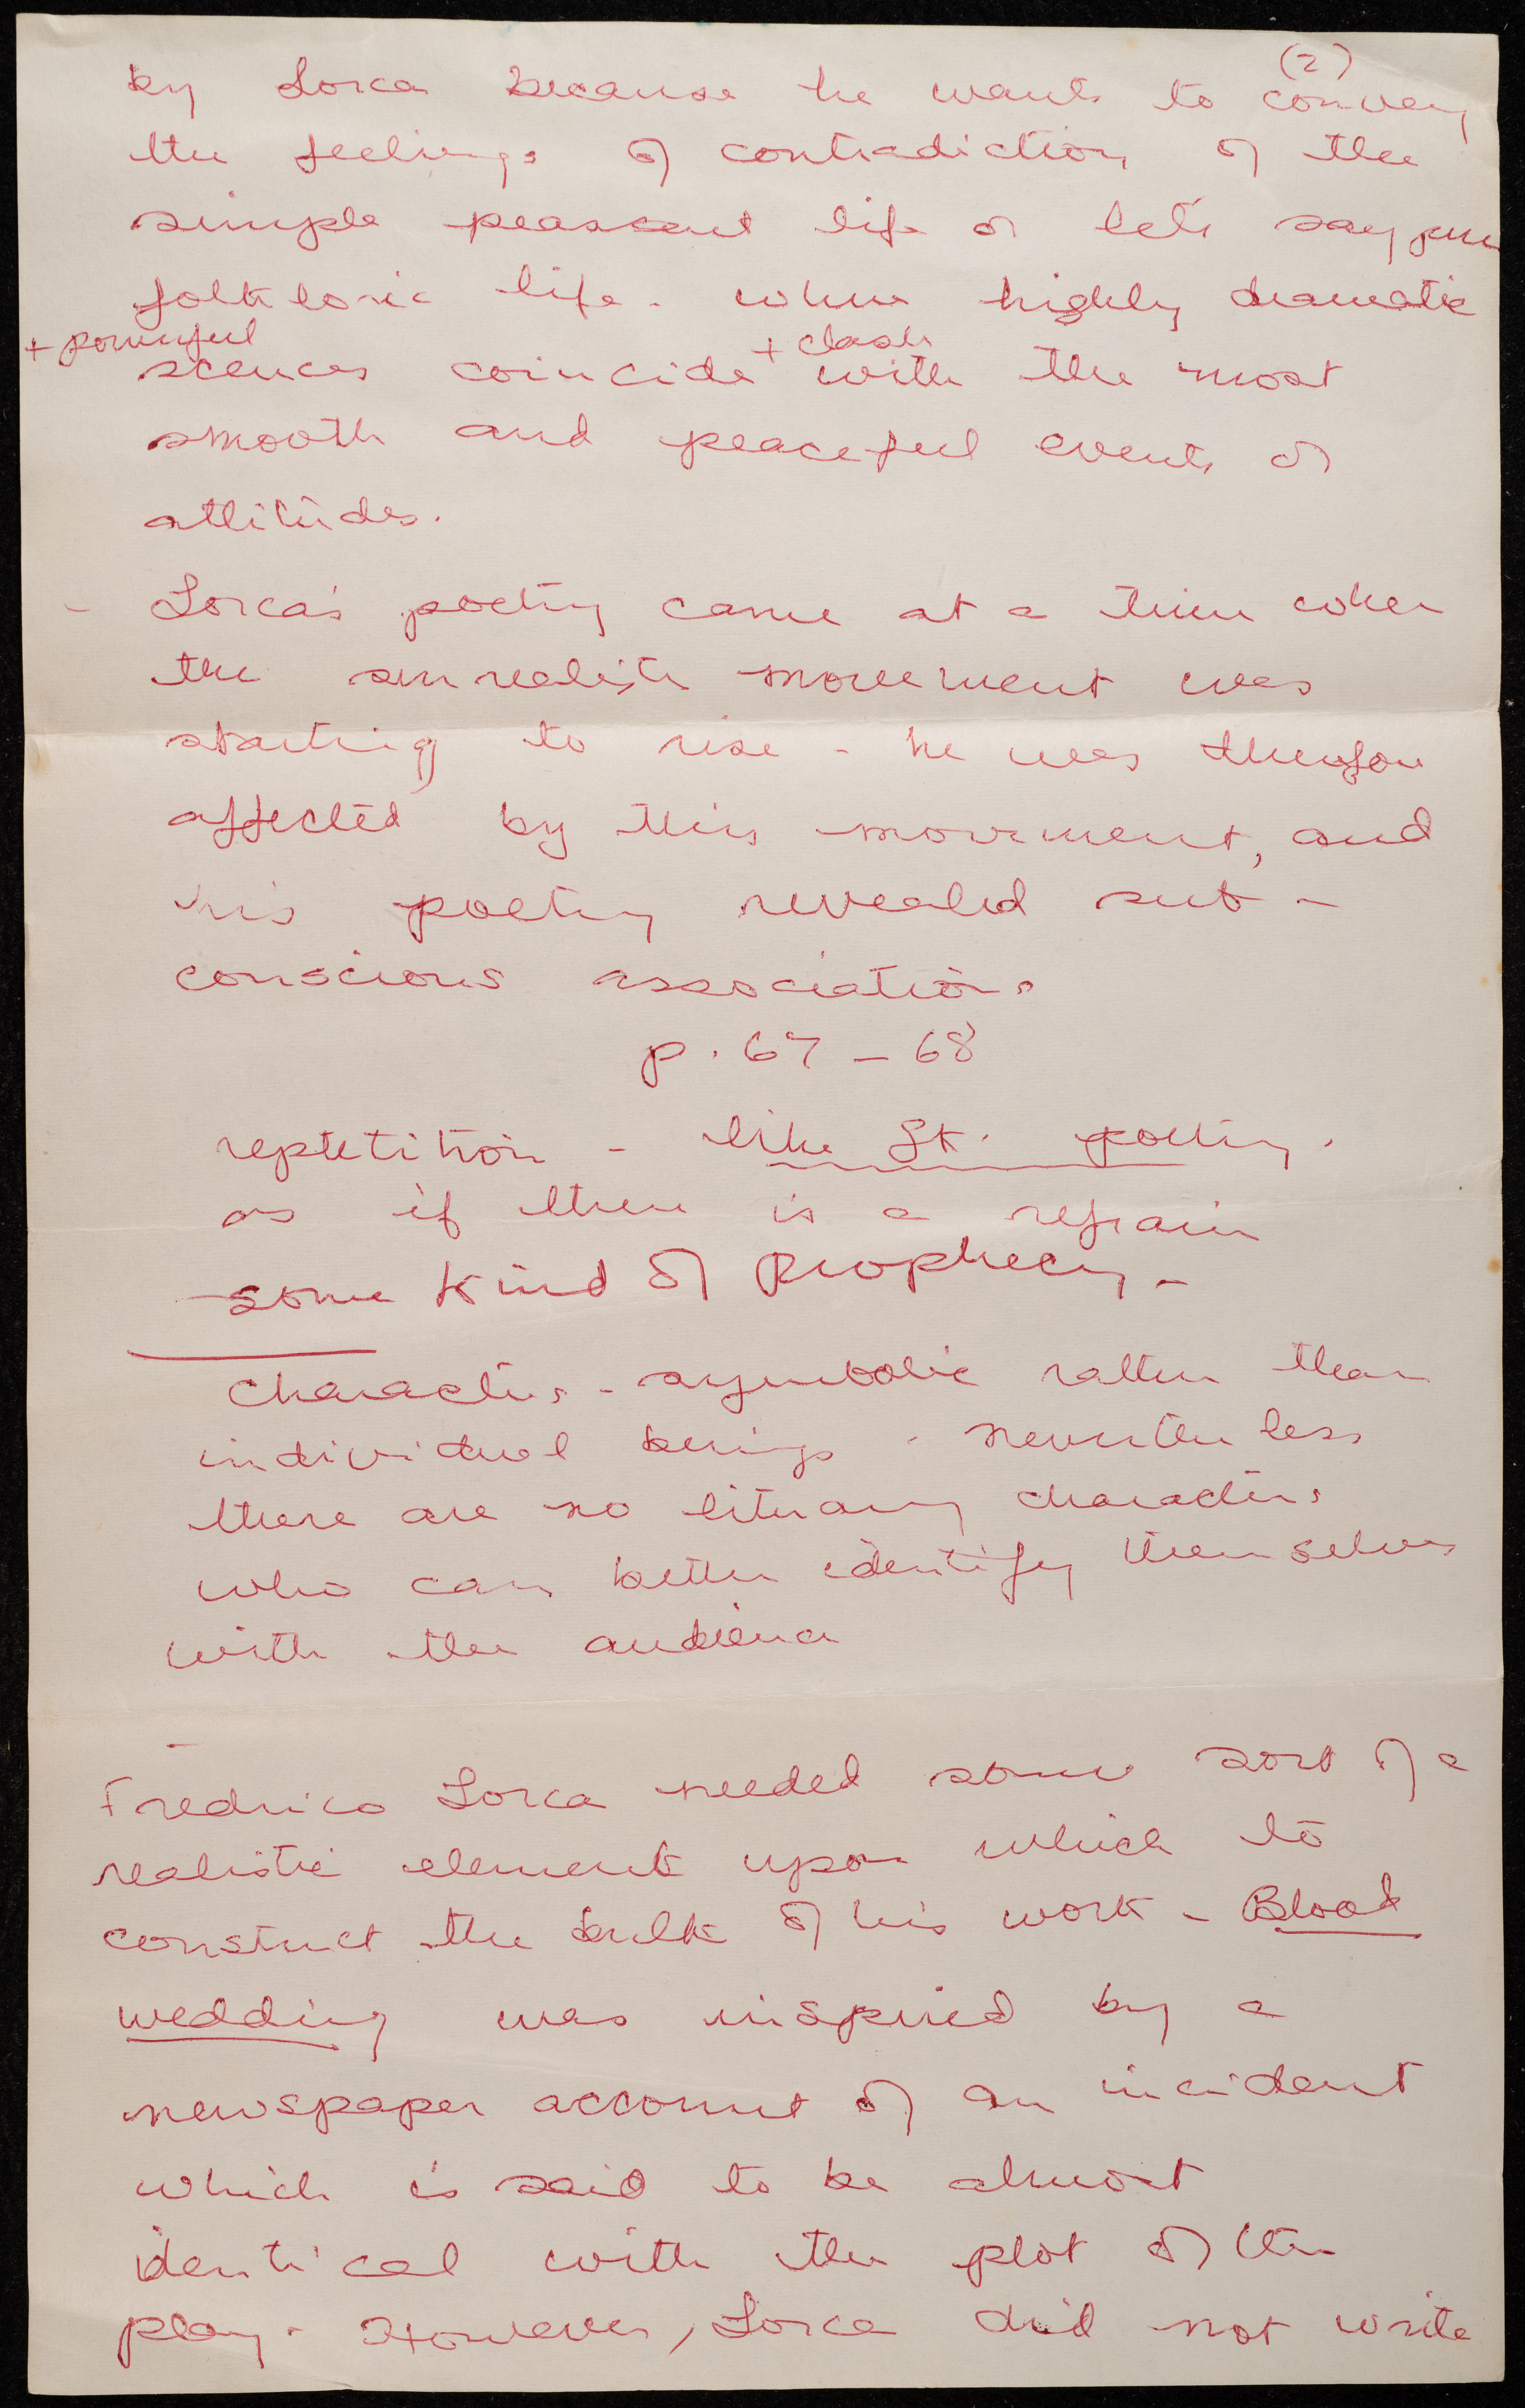 (2)
by Lorca because he wants to convey
the feelings of contradiction of the
simple peassant life or let's say pure
folkloric life - where highly dramatic
+ powerful + clash
scences coincide with the most
smooth and peaceful events or
attitudes.
- Lorca's poetry came at a time when
the surrealists movement was
starting to rise - he was therefore
affected by this movement, and
his poetry revealed sub -
conscious associations
p. 67 - 68
reptetition - like poetry.
as if there is a refrain
some kind of Prophecy -
characters - symbolic rather than
individual beings - nevertheless
there are no literary characters
who can better identify themselves
with the audience
-
Fredrico Lorca needed some sort of a
realistic element upon which to
construct the bulk of his work - Blood
wedding was inspired by a
newspaper account of an incident
which is said to be almost
identical with the plot of the
play. However, Lorca did not write